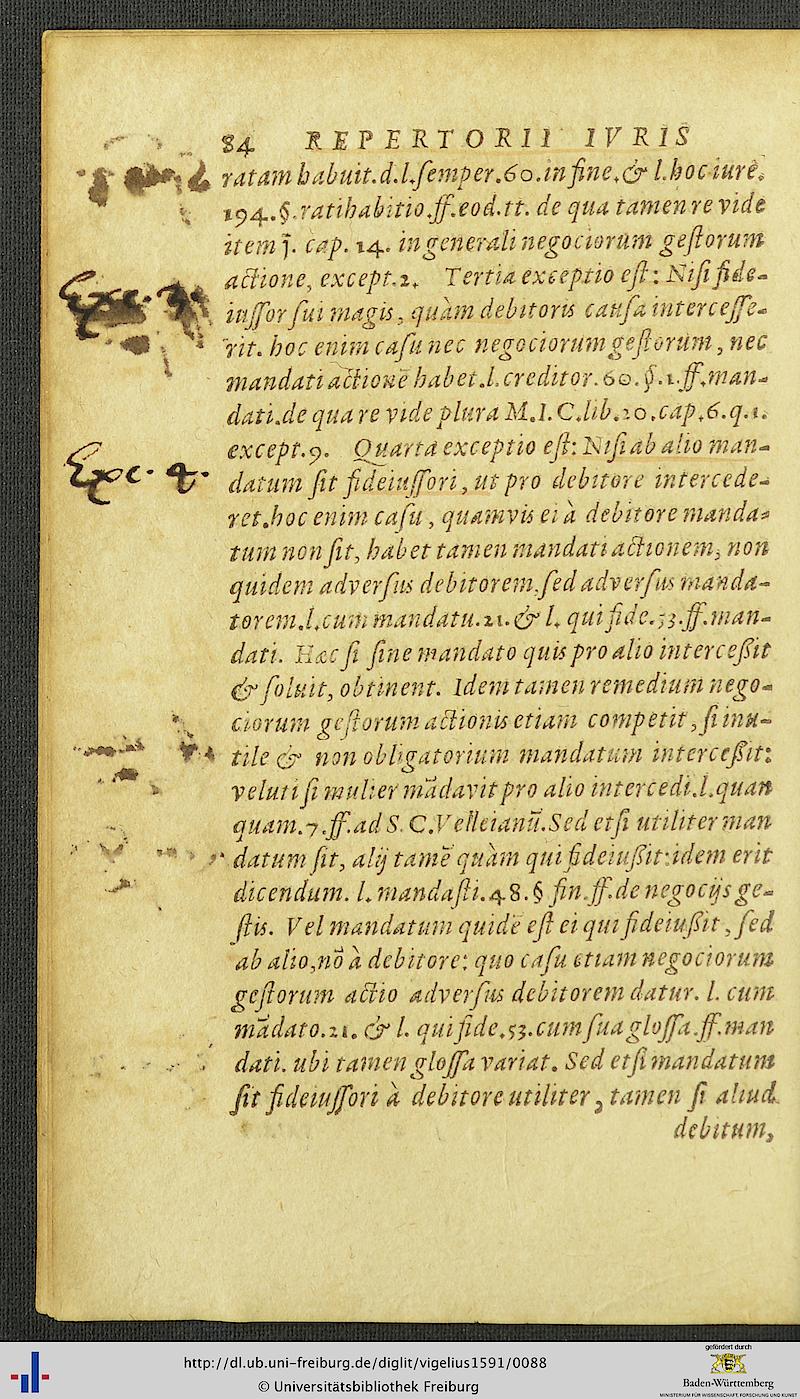 84 REPERTORII IVRIS
ratam habuit.d.l.ſemper.60.in fine.& l.hoc iure.
194.§.ratihabitio.ff.eod.tt. de qua tamen re vide
item j. cap. 14. in generali negociorum geſtorum
actione, except.2. Tertia exceptio eſt: Niſi fide-
Exc. 3.
iuſſor ſui magis, quàm debitoris cauſa interceſſe-
rit. hoc enim caſu nec negociorum geſtorum, nec
mandati actionē habet.l.creditor.60.§.1.ff.man-
dati.de qua re vide plura M.I.C.lib.10.cap.6.q.1.
except.9. Quarta exceptio eſt: Niſi ab alio man-
Exc. 4.
datum ſit fideiuſſori, ut pro debitore intercede-
ret.hoc enim caſu, quamvis ei à debitore manda-
tum non ſit, habet tamen mandati actionem, non
quidem adverſus debitorem.ſed adverſus manda-
torem.l.cum mandatu.21.& l. qui fide.53.ff.man-
dati. Hæc ſi ſine mandato quis pro alio interceßit
& ſoluit, obtinent. Idem tamen remedium nego-
ciorum geſtorum actionis etiam competit, ſi inu-
tile & non obligatorium mandatum interceßit:
veluti ſi mulier mādavit pro alio intercedi.l.quan
quam.7.ff.ad S.C.Velleianū.Sed etſi utiliter man
datum ſit, alij tamē quàm qui fideiußit:idem erit
dicendum. l. mandaſti.48.§ fin.ff.de negocijs ge-
ſtis. Vel mandatum quidē eſt ei qui fideiußit, ſed
ab alio,nō à debitore: quo caſu etiam negociorum
geſtorum actio adverſus debitorem datur. l. cum
mādato.21. & l. qui fide.53.cum ſua gloſſa.ff.man
dati. ubi tamen gloſſa variat. Sed etſi mandatum
ſit fideiuſſori à debitore utiliter, tamen ſi aliud
debitum,
http://dl.ub.uni-freiburg.de/diglit/vigelius1591/0088
© Universitätsbibliothek Freiburg
gefördert durch
Baden-Württemberg
MINISTERIUM FÜR WISSENSCHAFT, FORSCHUNG UND KUNST